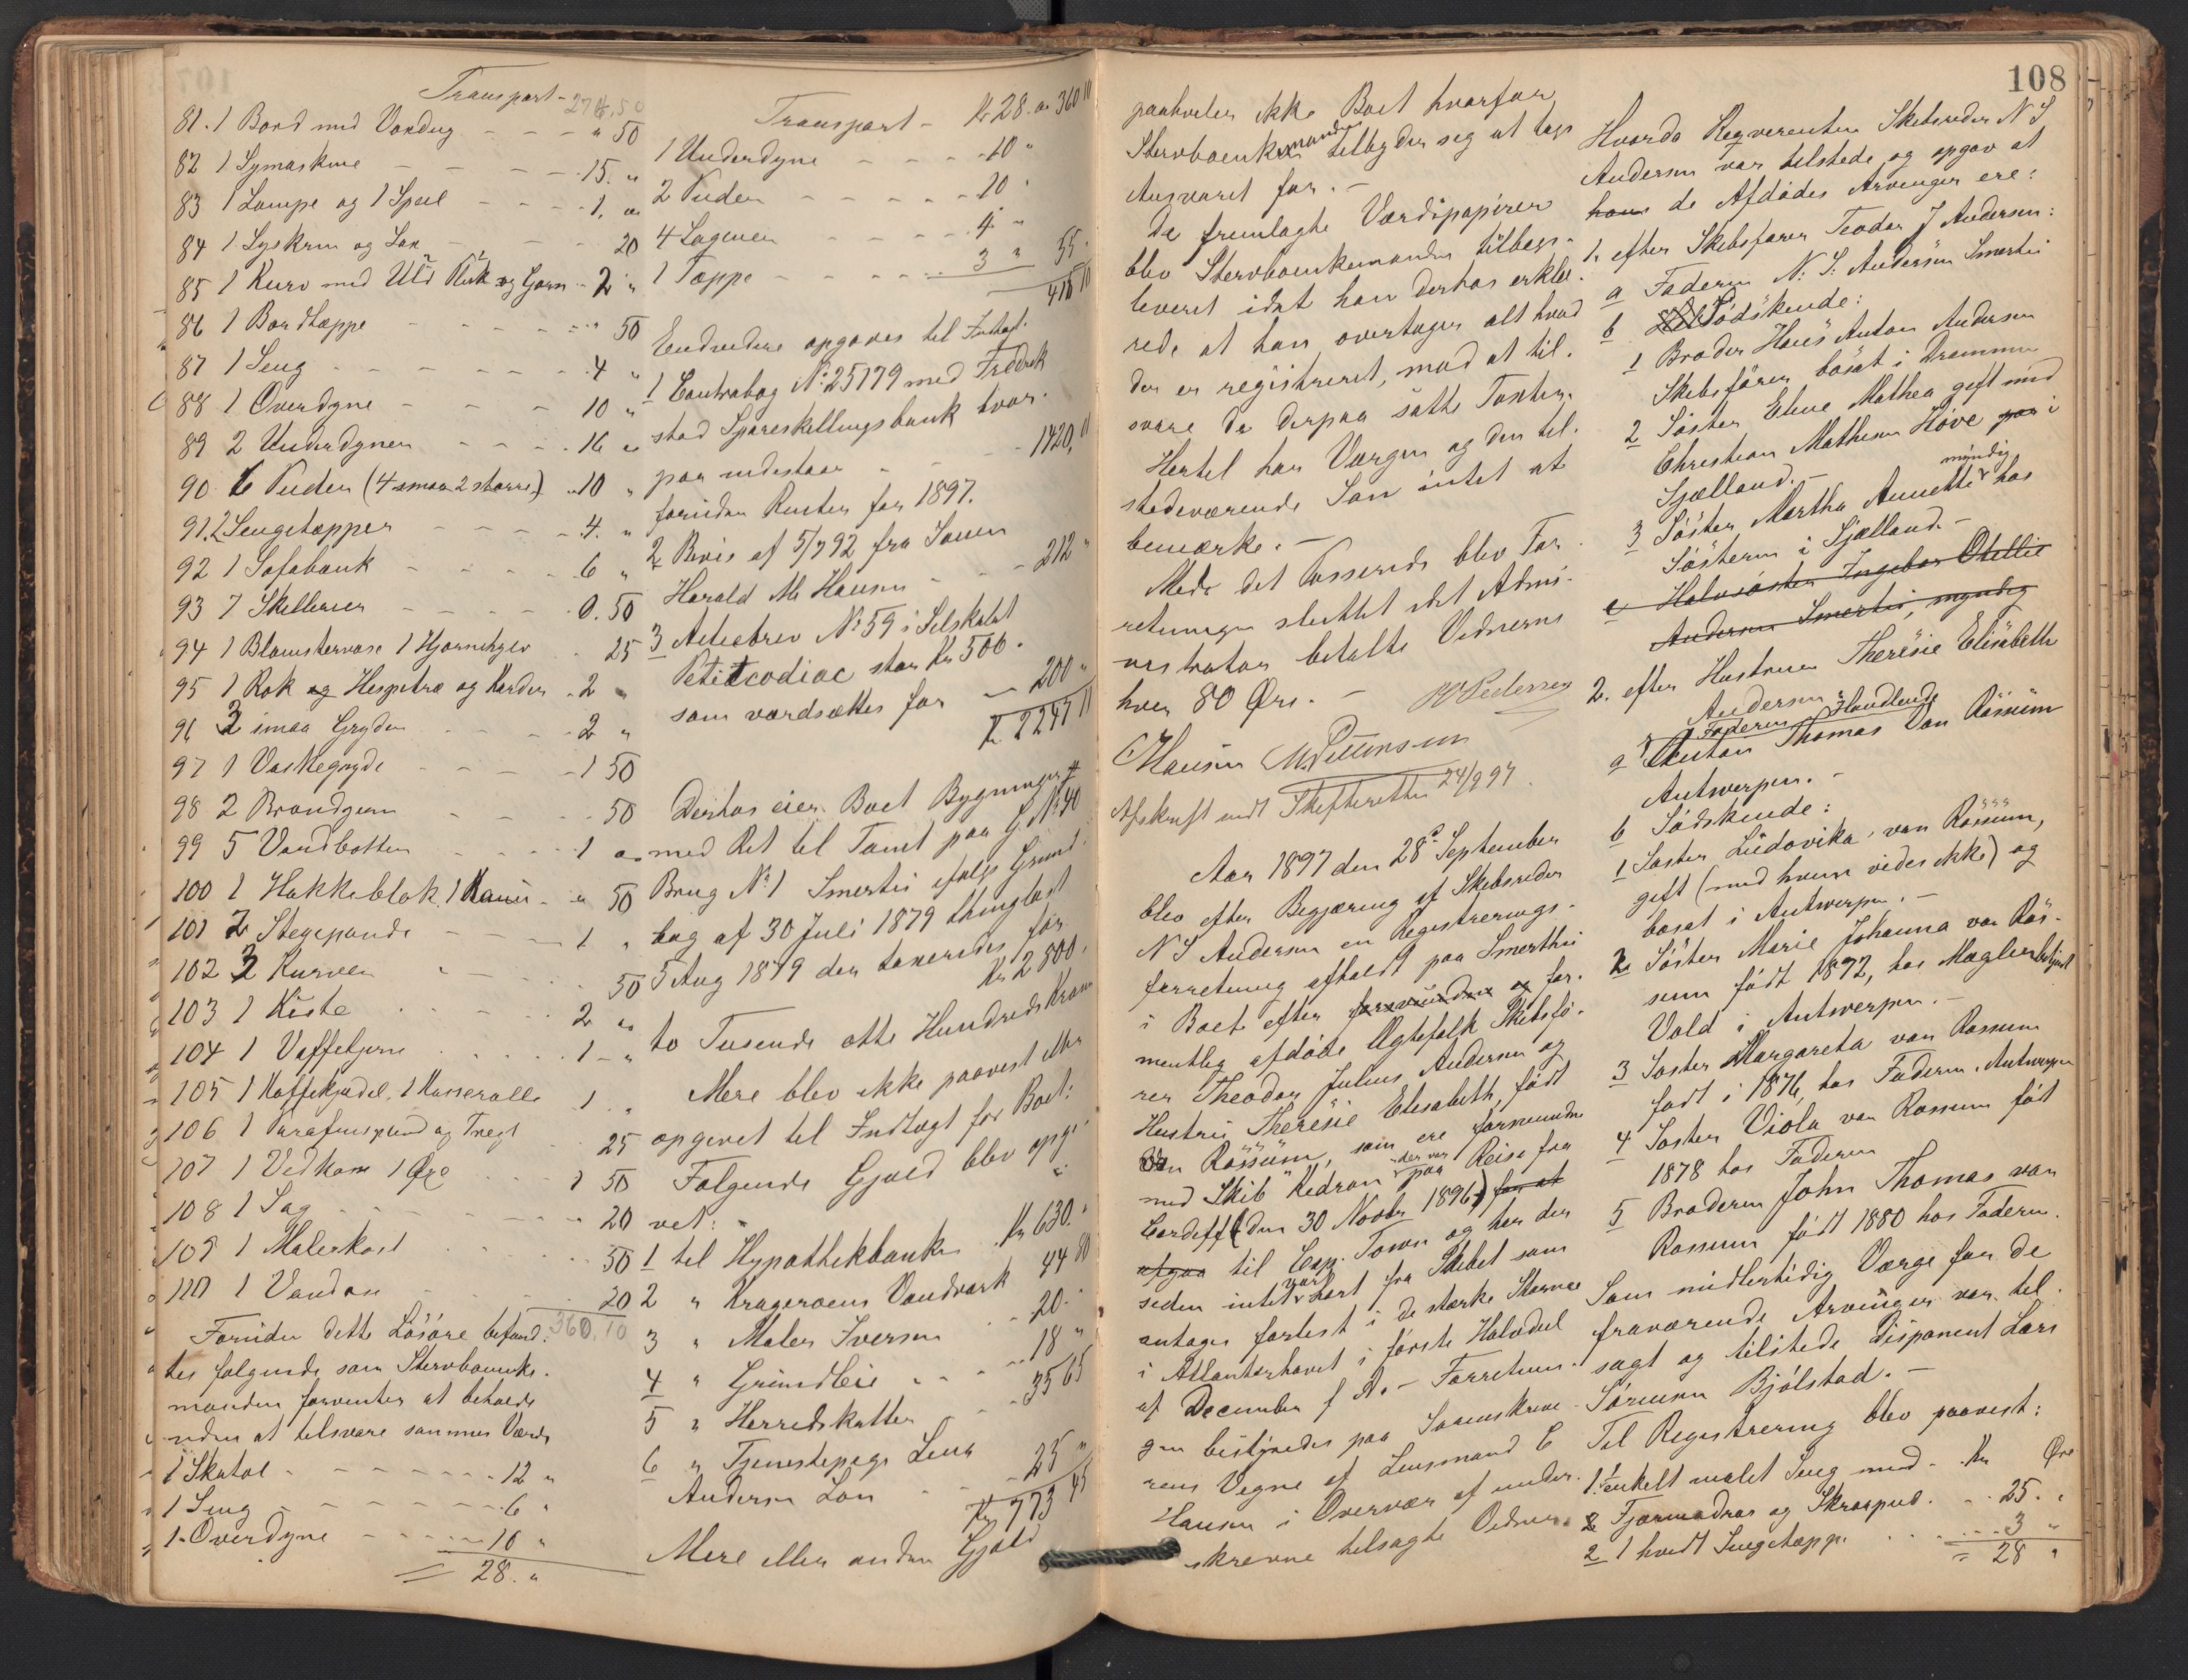 Transport - 274,50
81. 1 Bord med Voxdug - - - " 50
82 1 Symaskine - - - - 15. "
83 1 Lampe og 1 Speil - - - - 1. "
84 1 Lyskrone og Sax - - - 20
85 1 Kurv med Uld Rok og Garn - 2 "
86 1 Bordtæppe - - - - " 50
87 1 Seng - - - - - - 4 "
88 1 Overdyne - - - 10 "
89 2 Underdyner - - - - 16 "
90 6 Puder (4 smaa 2 større) - 10 "
91. 2 Sengetæpper - - - - 4. "
92 1 Sofabænk - - - - 6 "
93 7 Skillerier - - - - 0. 50
94 1 Blomstervase 1 Hjørnehylde 25
95 1 Rok og Hespetræ og Karder - 2 "
96 3 smaa Gryder - - - - 2 "
97 1 Vaskegryde - - - - 1 50
98 2 Brandjern - - - - 50
99 5 Vandbøtter - - - - 1 "
100 1 Hakkeblok, 1 " 50
101 2 Stegepande - - - 1 "
102 3 Kurver - - - 50
103 1 Kiste - - - - 2 "
104 1 Vaffeljern - - - - 1 - "
105 1 Kaffekjedel, 1 Kasserolle 1 "
106 1 Parafinspand og Tregt 25
107 1 Vedkasse 1 Øxe - - - 1 50
108 1 Sag - - - - - 20
109 1 Malerkost - - - - 50
110 1 Vandøse - - - - 20
360.10
Foruden dette Løsøre befand-
tes følgende som Stervboenke-
manden forventer at beholde
uden at tilsvare sammes Værdi
1 Skatol - - - - - - 12 "
1 Seng - - - - - - 6 "
1 Overdyne - - - - 10 "
= 28. "
Transport - Kr 28. " 360 10
1 Underdyne - - - - 10 "
2 Puder - - - - - 10 "
4 Lagener - - - - 4 "
1 Tæppe - - - - 3 " 55 "
415 10
Endvidere opgaves til Indtægt
1 Contrabog No: 25179 med Fredrik
stad Spareskillingsbank hvor-
paa indestaar - - - - 1420, "
foruden Renter for 1897.
2 Bevis af 5/7 92 fra Sønnen
Harald M Hansen - - - 212 "
3 Actiebrev No 59 i Selskabet
Petitcodiac stor Kr 500.
som værdsættes for - 200 "
Kr 2247 10
Derhos eier Boet Bygninger
med Ret til Tomt paa G. No 40
Brug No 1 Smertu ifølge Grund-
brug af 30 Juli 1879 thinglæst
5 Aug 1879 der taxeredes for
Kr 2800.
to Tusende otte Hundrede Kroner
Mere blev ikke paavist eller
opgivet til Indtægt for Boet:
Følgende Gjæld blev opgi-
vet:
1 til Hypothekbanken Kr 630. "
2 " Kragerøens Vandværk 44 80
3 " Maler Iversen 20. "
4 " Grundleie - - - 18 "
5 " Herredskatter - - 35 65
6 " Tjenestepige Lina
Andersen Løn - - 25 "
Kr 773 45
Mere eller anden Gjæld
108
paahviler ikke Boet hvorfor
Stervboenkemanden tilbyder seg at tage
Ansvaret for. -
De fremlagte Værdipapirer
blev Stervboenkemanden tilbage-
leveret idet han derhos erklæ-
rede at han overtager alt hvad
der er registreret, mod at til-
svare de derpaa satte Taxter.
Hertel har Værgen og den til-
stedeværende Søn intet at
bemærke. -
Med det Passerede blev For-
retningen sluttet idet Admi-
nistrator betalte Vidnerne
hver 80 Øre. -
C Hansen M. Pettersen W Pedersen
Afskrift sendt Skifteretten 24/9 97.
Aar 1897 den 28de September
blev efter Begjæring af Skibsreder
N S Andersen en Registrerings-
forretning afholdt paa Smerthu
i Boet efter forsvundne og for-
mentlig afdøde Ægtefolk Skibsfø-
rer Theodor Julius Andersen og
Hustru Theresie Elisabeth, født
van Rossum, som ere forsvundne
med Skib "Kedron" der var paa Reise fra
Cardiff (den 30 Novbr 1896) for at
afgaa til Cap. Town og har der
siden intet vært hørt fra Skibet som
antages forlist i de stærke Storme
i Atlanterhavet i første Halvdel
af December f A. - Forretnin-
gen bestyredes paa Sorenskrive-
rens Vegne af Lensmand C
Hansen i Overvær af under-
skrevne tilsagte Vidner.
Hvorda Reqverenten Skibsreder N S
Andersen var tilstede og opgav at
hans de Afdødes Arvinger ere:
1. efter Skibsfører Teodor J Andersen:
a Faderen N: S: Andersen Smertu
b Sødskende:
1 Broder Hans Anton Andersen
Skibsfører bosat i Drammen
2 Søster Elene Mathea gift med
Christian Mathesen Høve paa i
Sjælland. -
3 Søster Martha Annette myndig hos
Søsteren i Sjælland. -
c Halvsøster Ingebor Othellie
Andersen Smertu, myndig
2. efter Hustruen Theresie Elisabeth
Andersen
a Faderen Handlende Anton Thomas Van Rossum
Antwerpen. -
b Sødskende:
1 Søster Ludovika van Rossum,
gift (med hvem vides ikke) og
bosat i Antwerpen. -
2 Søster Marie Johanna van Ros-
sum født 1872, hos Mægler
Vold i Antwerpen. -
3 Søster Margareta van Rossum
født i 1876, hos Faderen, Antwerpen
4 Søster Viola van Rossum født
1878 hos Faderen
5 Broderen John Thomas van
Rossum født 1880 hos Faderen.
Som midlertidig Værge for de
fraværende Arvinger var til-
sagt og tilstede Disponent Lars
Sørensen Bjølstad. -
Til Registrering blev paavist:
Kr Øre
1. 1 enkelt malet Seng med
Fjærmadras og Skraapud. - - 25. "
2 1 hvidt Sengetæppe - - - - 3 "
= 28 "